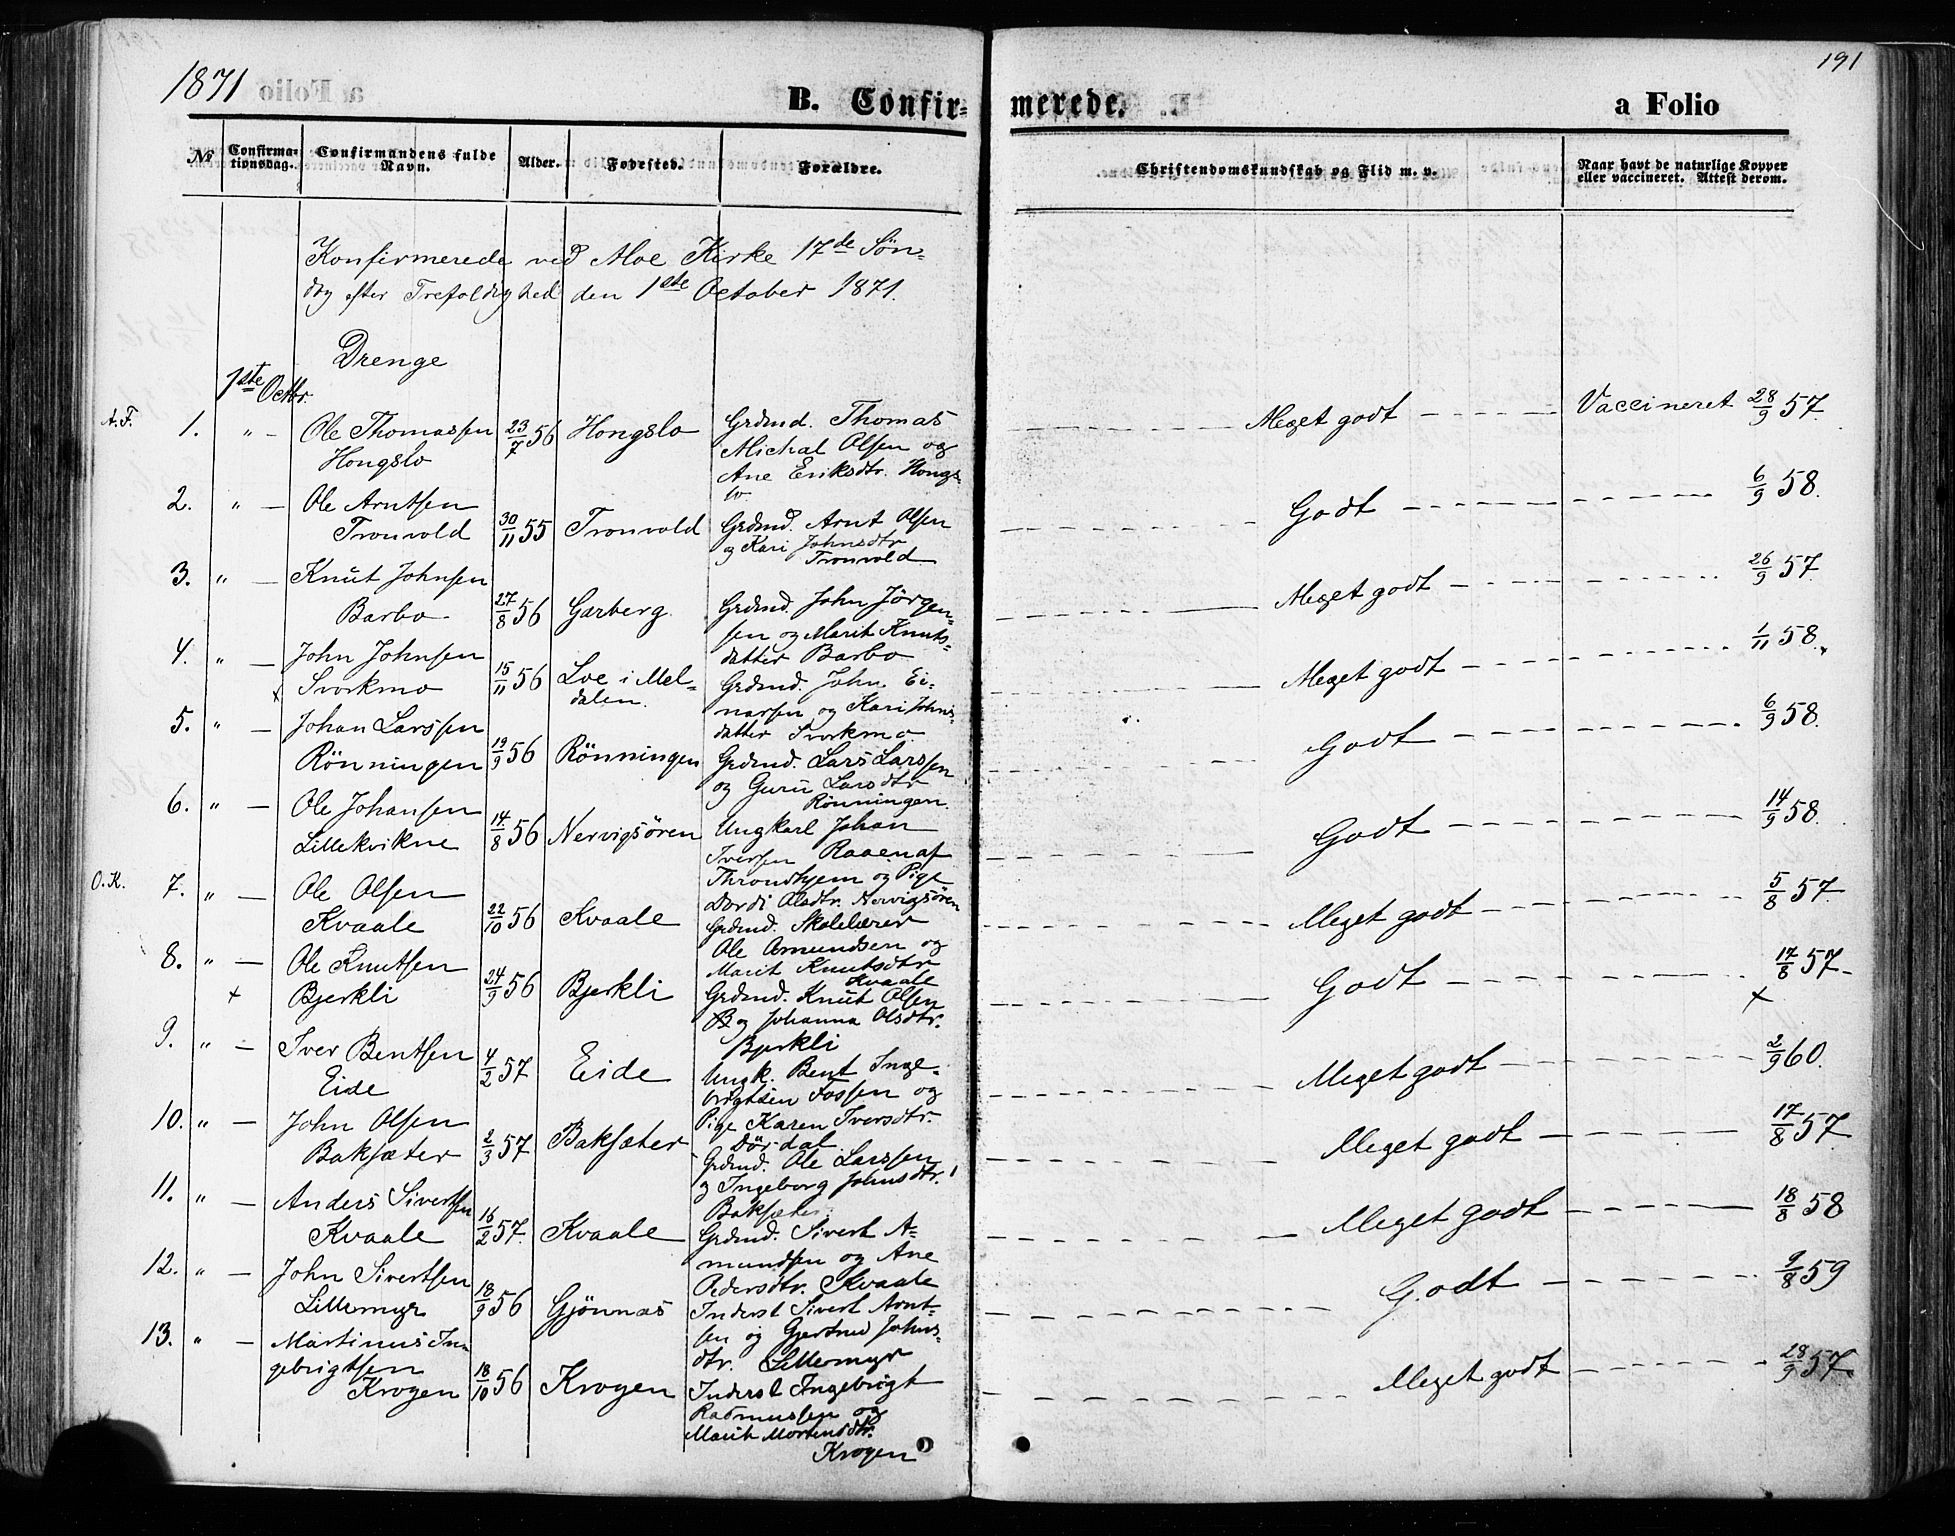 1871
191
B. Confir-
merede.
a Folio
№
Confirma-
tionsdag.
Confirmandens fulde
Navn.
Alder.
Fødested.
Forældre.
Christendomskundskab og Flid m. v.
Naar havt de naturlige Kopper
eller vaccineret. Attest derom.
Konfirmerede ved Moe Kirke 17de Søn-
dag efter Trefoldighed den 1ste October 1871.
Drenge
1ste Octbr.
A.F. 1. " - Ole Thomassen 23/7 56 Hongslo Grdmd. Thomas Meget godt Vaccineret 28/9 57
Hongslo Michal Olsen og
Ane Eriksdtr. Hongs-
lo
2. " - Ole Arntsen Godt 6/9 58.
Tronvold 30/11 55 Tronvold Grdmd. Arnt Olsen
og Kari Johnsdtr
Tronvold
3. " - Knut Johnsen Meget godt 26/9 57
Barbo 27/8 56 Garberg Grdmd. John Jörgen-
sen og Marit Knuts-
datter Barbo
4. " - John Johnsen Meget godt 1/11 58.
x Svorkmo 15/11 56 Loe i Mel- Grdmd. John Ei-
dalen. narsen og Kari Johns-
datter Svorkmo
5. " - Johan Larssen Godt 6/9 58.
Rönningen 19/9 56 Rönningen Grdmd. Lars Larssen
og Guru Larsdtr
Rönningen.
6. " - Ole Johansen Godt 14/9 58.
Lillekvikne 14/8 56 Nervigsören Ungkarl Johan
Iversen Raaen af
Throndhjem og Pige
Dordi Olsdtr. Nervigsören
O.K. 7. " - Ole Olsen Meget godt 5/8 57.
Kvaale 22/10 56 Kvaale Grdmd. Skolelærer
Ole Amundsen og
Marit Knutsdtr
Kvaale
8. " - Ole Knutsen Godt 17/8 57
x Bjerkli 24/9 56 Bjerkli Grdmd. Knut Olsen x
B og Johanna Olsdtr.
Bjerkli
9. " - Iver Bentsen 4/2 57 Eide Ungk. Bent Inge- Meget godt 2/9 60.
Eide brigtsen Fossen og
Pige Karen Iversdtr.
Dördal
10. " - John Olsen Meget godt 17/8 57
Baksæter 2/3 57 Baksæter Grdmd. Ole Larssen
og Ingeborg Johnsdtr.
Baksæter
11. " - Anders Sivertsen Meget godt 18/8 58
Kvaale 16/2 57. Kvaale Grdmd. Sivert A-
mundsen og Ane
Pedersdtr. Kvaale
12. " - John Sivertsen Godt 9/8 59
Lillemyr 18/9 56 Gjönnæs Inderst Sivert Arnt-
sen og Gjertrud Johns-
dtr. Lillemyr
13. " - Martinus In- Meget godt 28/9 57.
gebrigtsen
Krogen 18/10 56 Krogen Inderst Ingebrigt
Rasmussen og
Marit Mortensdtr.
Krogen